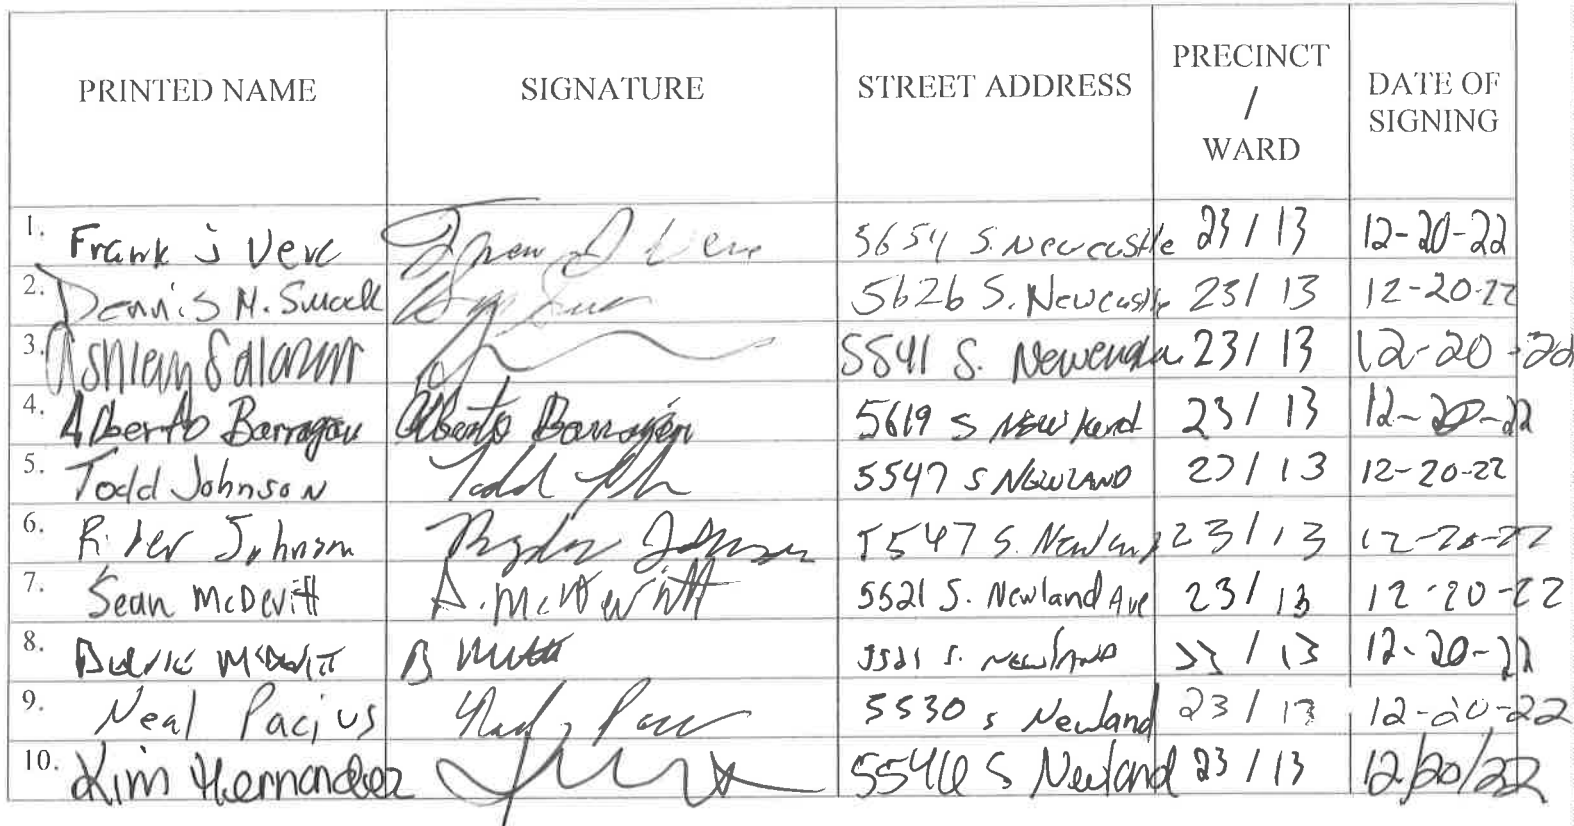 PRINTED NAME SIGNATURE STREET ADDRESS PRECINCT / WARD DATE OF SIGNING
1. Frank J Vere 5654 S. Newcastle 23 / 13 12-20-22
2. Dennis M. 5626 S. Newcastle 23 / 13 12-20-22
3. Ashley Salazar 5541 S. 23 / 13 12-20-22
4. Alberto Barragan Alberto Barragán 5619 S 23 / 13 12-20-22
5. Todd Johnson Todd 5547 S NEWLAND 23 / 13 12-20-22
6. Johnson Johnson 5547 S. Newland 23 / 13 12-20-22
7. Sean McDevitt S. McDevitt 5521 S. Newland Ave 23 / 13 12-20-22
8. McDevitt B 5521 S. NEWLAND 23 / 13 12-20-22
9. Neal Pacius 5530 S Newland 23 / 13 12-20-22
10. Kim Hernandez 5546 S Newland 23 / 13 12/20/22